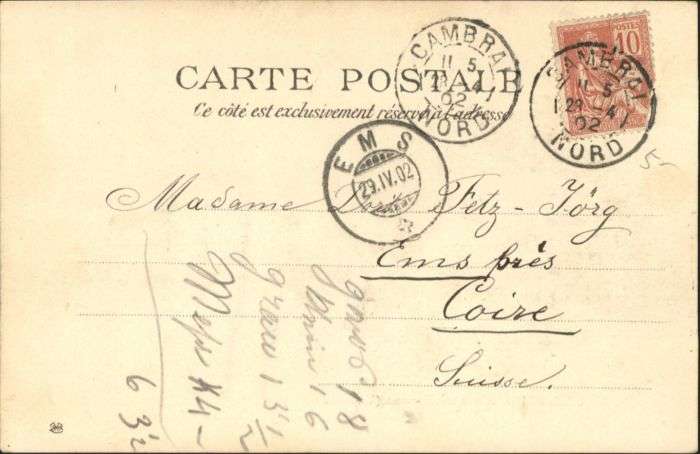 CARTE POSTALE
Ce côté est exclusivement réservé à l'adresse
CAMBRAI
11 5
02
NORD
POSTES
10
CAMBRAI
11 5
29 -4
02
NORD
EMS
29.IV.02
5-
Madame Fetz-Jörg
Ems près
Coire
Suisse.
1 8
1 6
1 3½
44-
6 3½